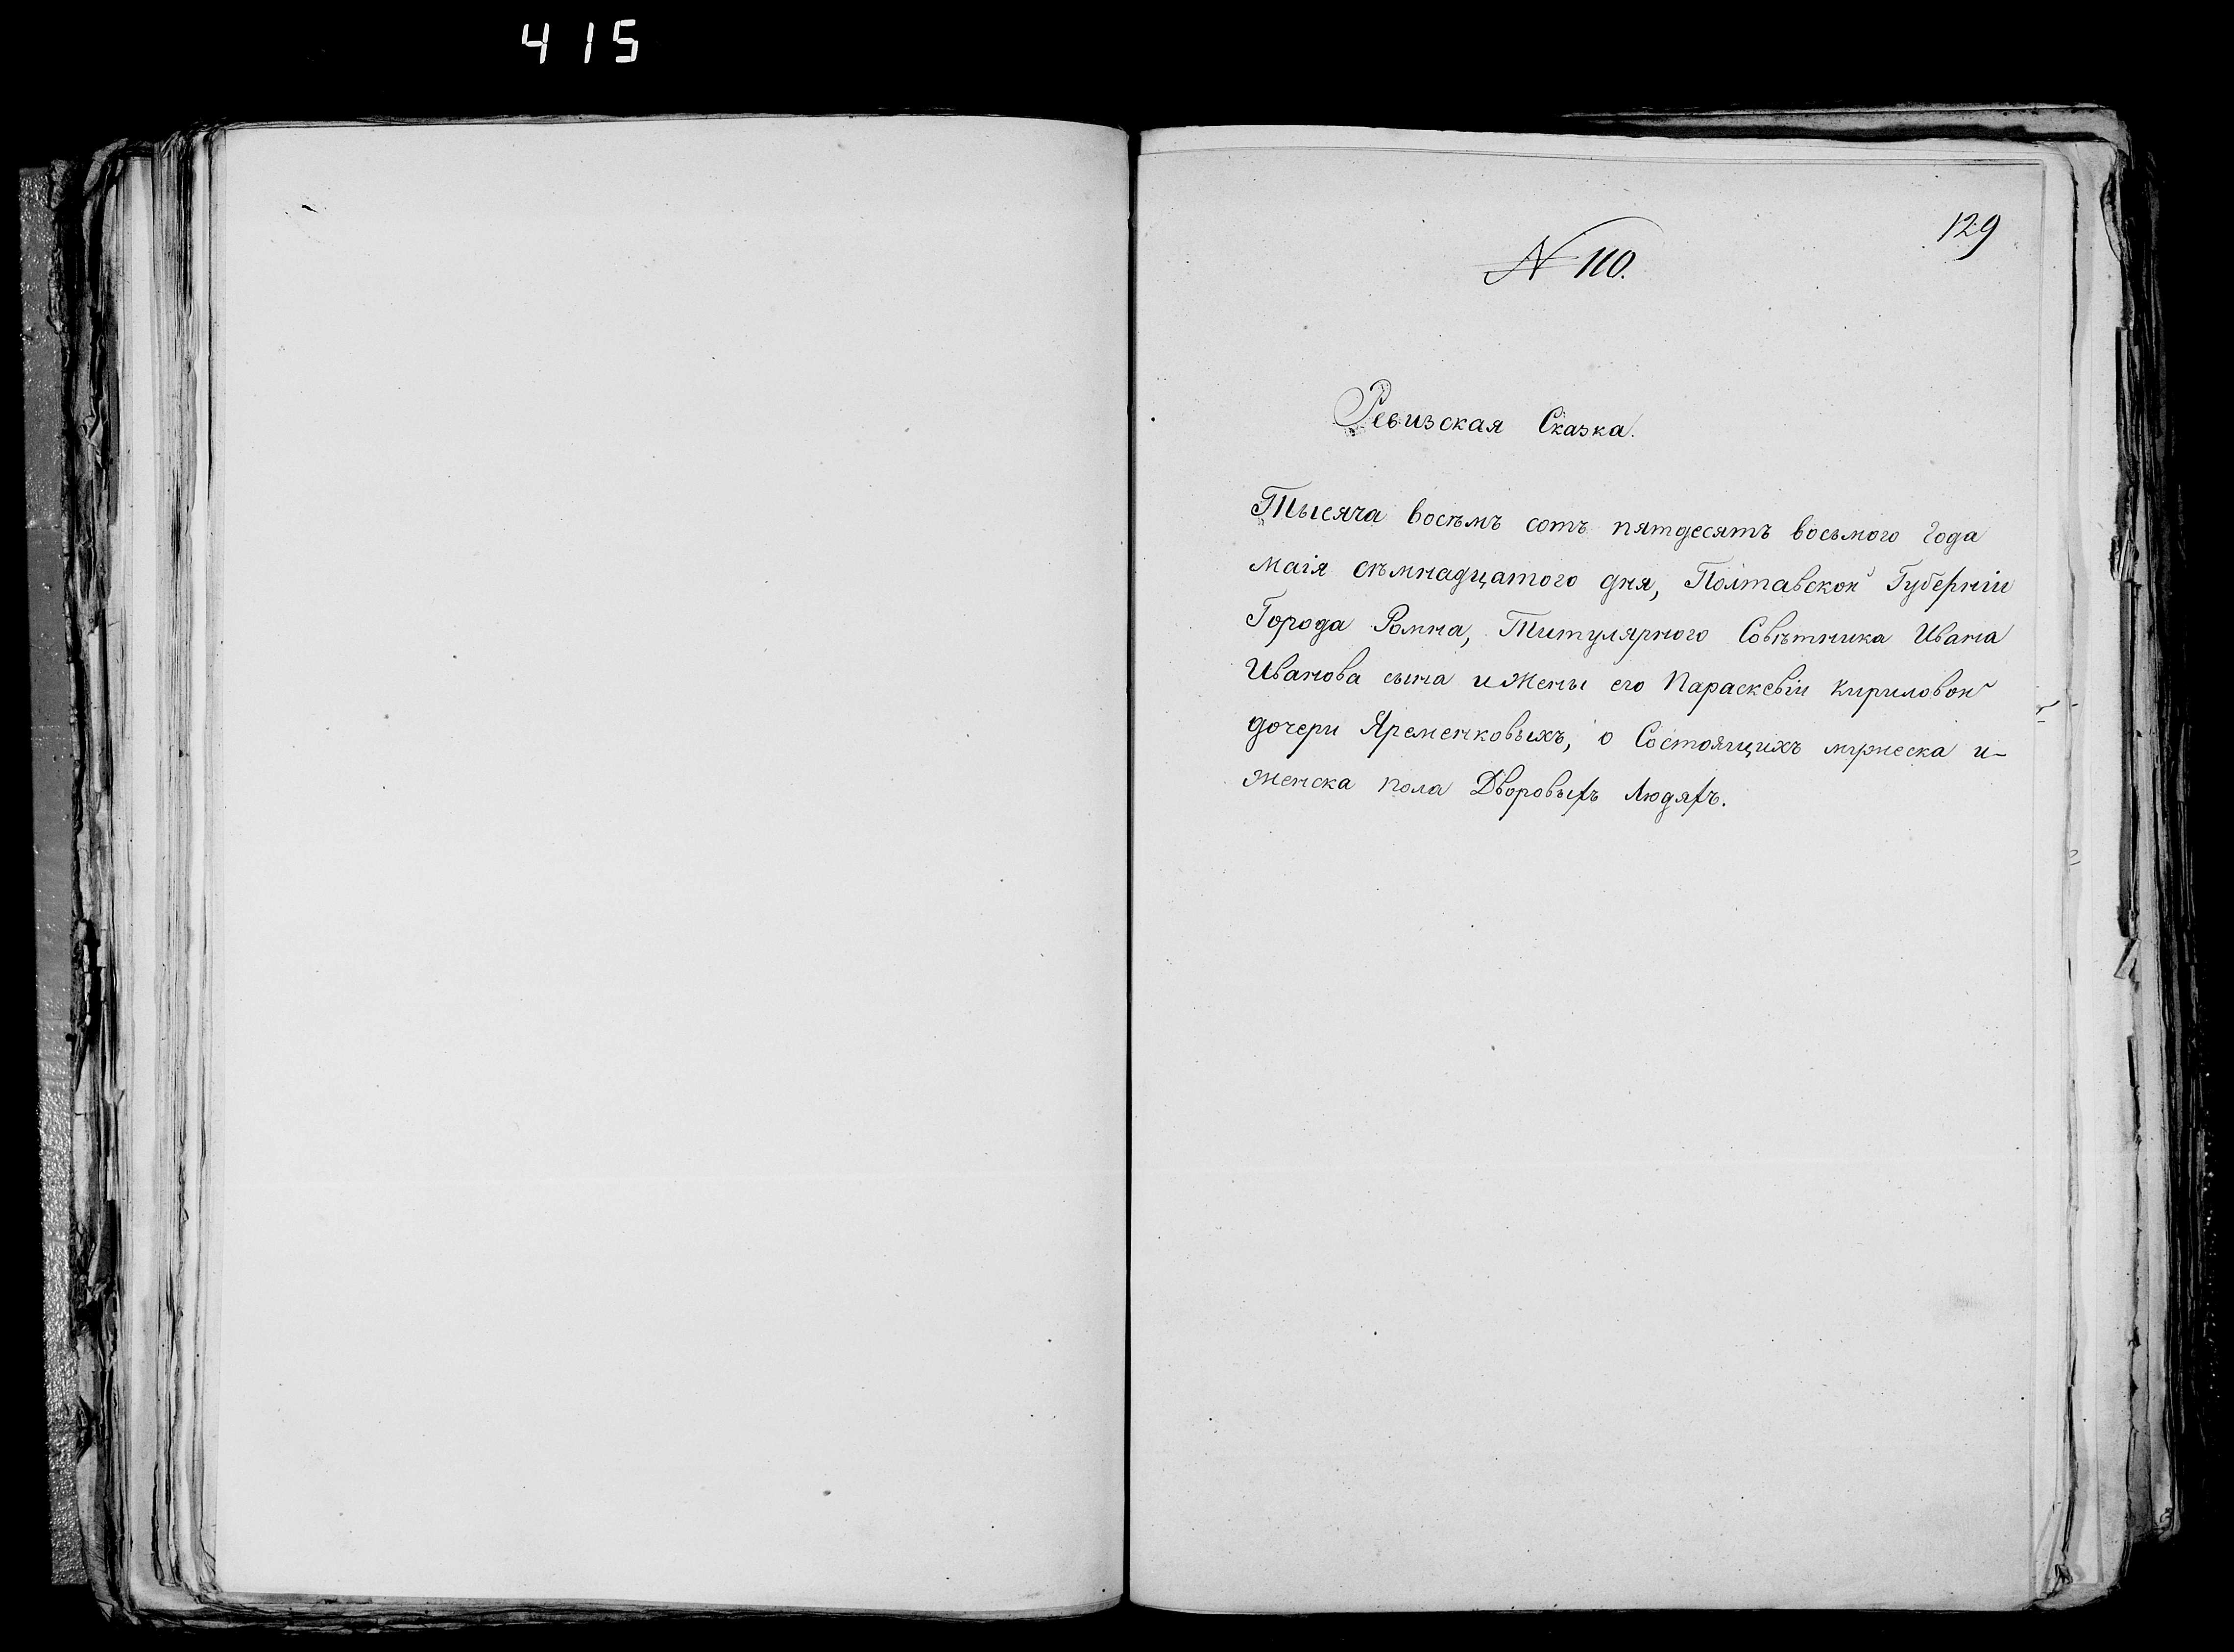 415
129
N 110.
Ревизская Сказка.
Тысяча восѣмъ сотъ пятдесятъ восьмого года
маія сѣмнадцатого дня, Полтавской Губерніи
Города Ромна, Титулярного Совѣтника Ивана
Иванова сына и жены его Параскевіи Кириловой
дочери Яременковыхъ, о Состоящихъ мужеска и-
женска пола Дворовыхъ Людяхъ.